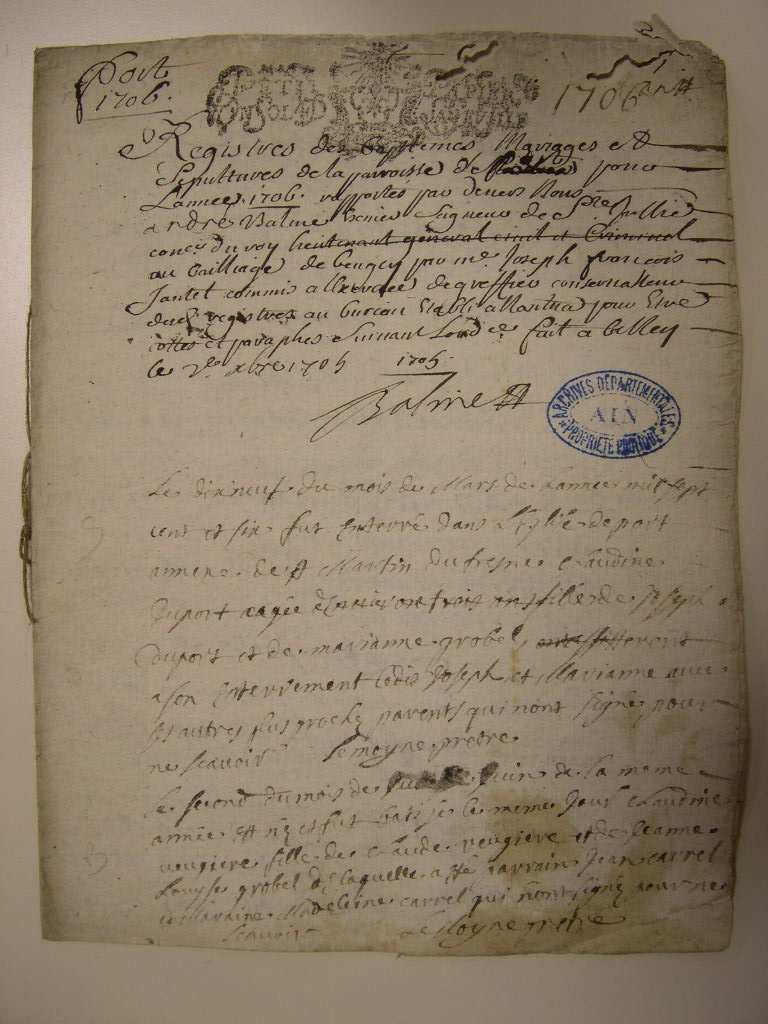 Port
1706.
1706
Registres des baptemes Mariages et
Sepultures de la parroisse de pour
L'annee 1706. rapportes par devers Nous
andre Balme Seigneur de Ste Jullie
coner du roy lieutenant general civil et Criminel
au bailliage de beugey par me. Joseph francois
Jantet commis a de greffier conservateur
registres au bureau Etabli a Nantua pour Etre
cottes et paraphes Suivant fait a belley
le xbre 1705 1705.
Balme
ARCHIVES DÉPARTEMENTALES
AIN
PROPRIÉTÉ PUBLIQUE
Le dixneuf du mois de Mars de lannee mil sept
cent et six fut Enterré dans L'Eglise de port
annexe de St Martin du fresne Claudine
Duport aagée d'Environ trois ans fille de Joseph
Duport et de marianne grobel,
a son Enterrement Ledit Joseph et Marianne avec
les autres plus proche parents qui n'ont signé pour
ne scavoir Lemoyne pretre
Le second du mois de Juin de la meme
année est néz et fut batisé le meme Jour Claudine
vougiere fille de Claude vougiere et de Jeanne
Louyse grobel de laquelle a esté parrain Jean carrel
et Maraine Madeleine carrel qui n'ont signéz pour ne
scavoir Lemoyne pretre